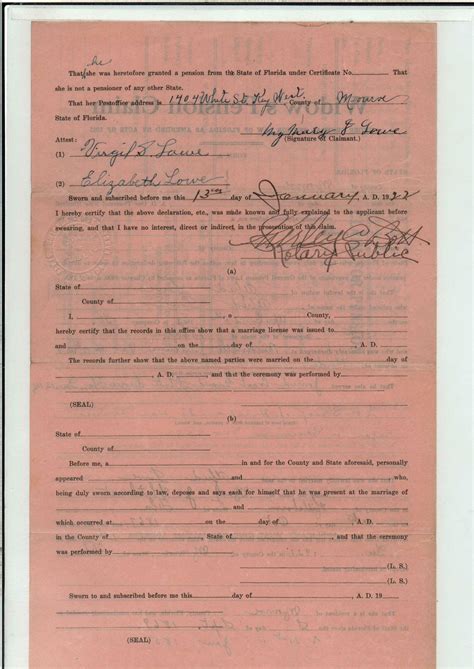 he
That she was heretofore granted a pension from the State of Florida under Certificate No. That
she is not a pensioner of any other State.
That her Postoffice address is 1704 White St. Key West. County of Monroe
State of Florida.
Attest: Mary J Lowe
(1) Virgil S. Lowe (Signature of Claimant.)
(2) Elizabeth Lowe
Sworn and subscribed before me this 13 day of January A. D. 1922
I hereby certify that the above declaration, etc., was made known and fully explained to the applicant before
swearing, and that I have no interest, direct or indirect, in the prosecution of this claim.
Notary Public
(a)
State of
County of
I, , o County,
hereby certify that the records in this office show that a marriage license was issued to
and on the day of A. D.
The records further show that the above named parties were married on the day of
A. D. and that the ceremony was performed by
(SEAL)
(b)
State of
County of
Before me, a in and for the County and State aforesaid, personally
appeared and who,
being duly sworn according to law, deposes and says each for himself that he was present at the marriage of
and
which occurred at on the day of A. D.
in the County of State of and that the ceremony
was performed by
(L. S.)
(L. S.)
Sworn to and subscribed before me this day of A. D. 19
(SEAL)